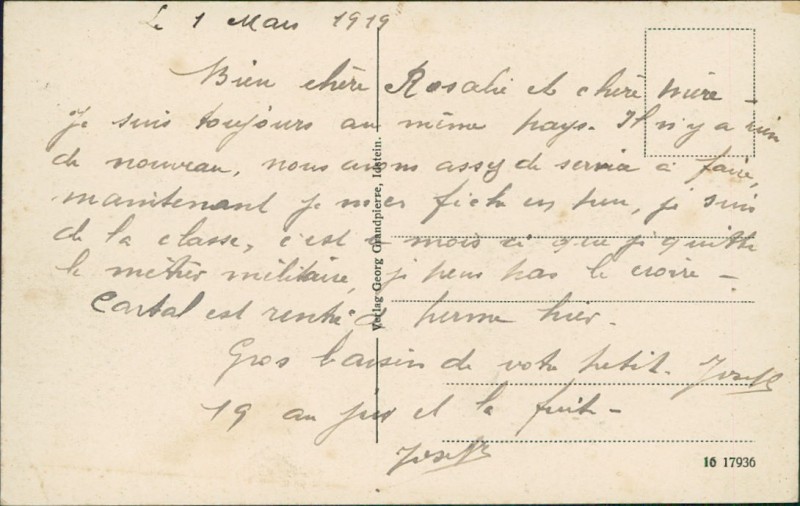 Le 1 Mars 1919
Bien chère Rosalie et chère mère -
Je suis toujours au même pays. Il n'y a rien
de nouveau, nous avons assez de service à faire,
maintenant je m'en fiche un peu, je suis
de la classe, c'est mois ci que je quitte
le métier militaire, je peus pas le croire -
Cartal est rentré perme hier.
Gros baisers de votre petit Joseph
19 au jus et la fuite -
Joseph
Verlag Georg Grandpierre, Idstein.
16 17936